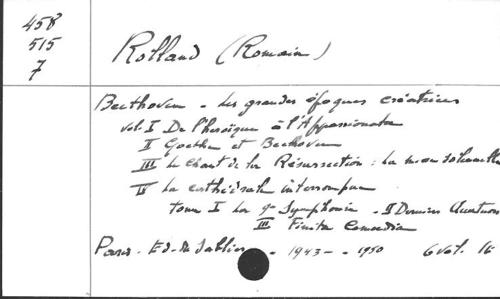 458
515
7
Rolland (Romain)
Beethoven - Les grandes époques créatrices
vol. I De l'héroïque à l'Appassionata
II Goethe et Beethoven
III Le Chant de la Résurrection : la messe solennelle
IV La cathédrale interrompue
tome I La 9e Symphonie - II Derniers Quatuors
III Finita Comoedia
Paris - Ed. du Sablier - 1943 - 1950 6 vol. 16